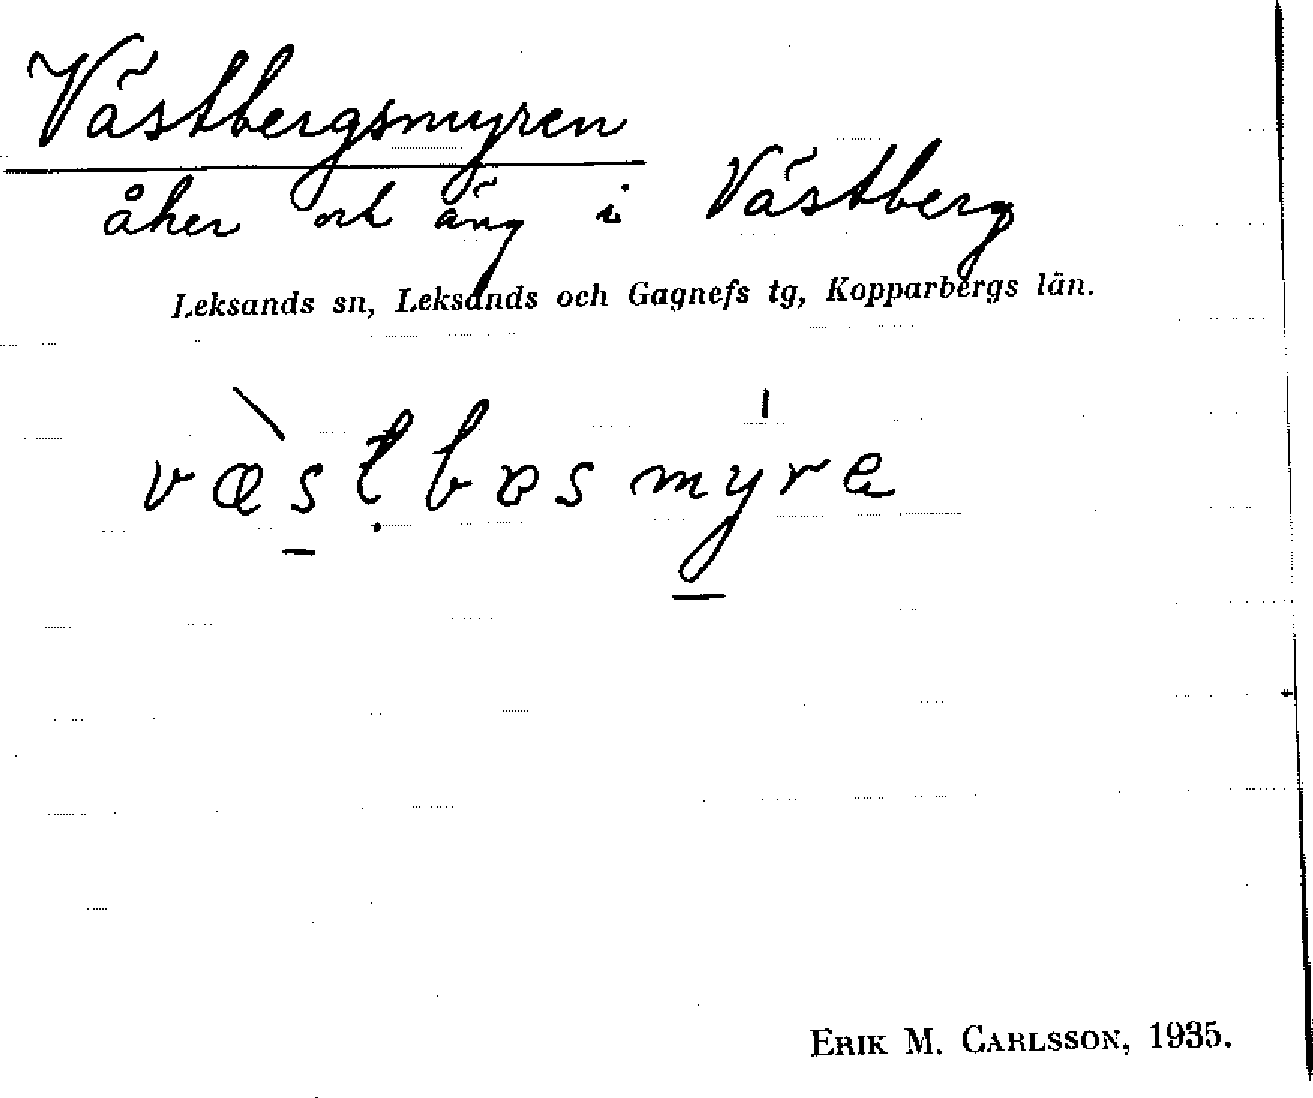 Västbergsmyren
åker och äng i Västberg
Leksands sn, Leksands och Gagnefs tg, Kopparbergs län.
væ̀stḷbɐsmýra
ERIK M. CARLSSON, 1935.